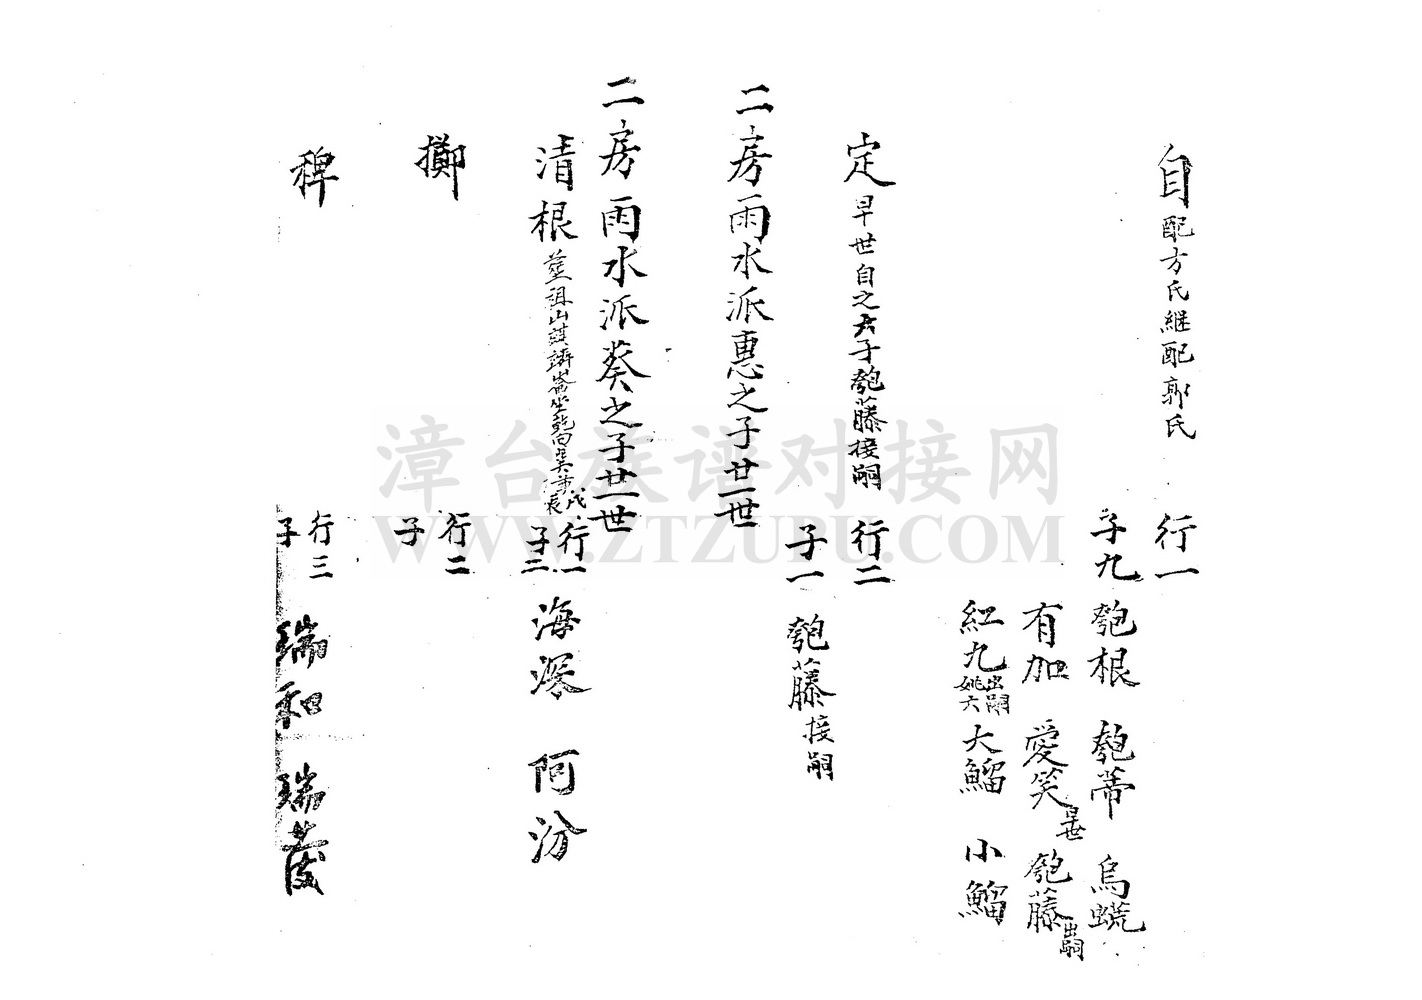 自 配方氏継配郭氏 行一
子九 匏根 匏蒂 烏𧎚
有加 愛笑 早世 匏藤 出嗣
紅九 出嗣姚六 大鰡 小鰡
定 早世自之六子匏藤接嗣 行二
子一 匏藤 接嗣
二房雨水派惠之子廿一世
二房雨水派葵之子廿一世
清根 祖山 坐乾向巽 行一
子三 海深 阿汾
擲 行二
子
稗 行三
子 瑞和 瑞茂
漳台族谱对接网
WWW.ZTZUPU.COM